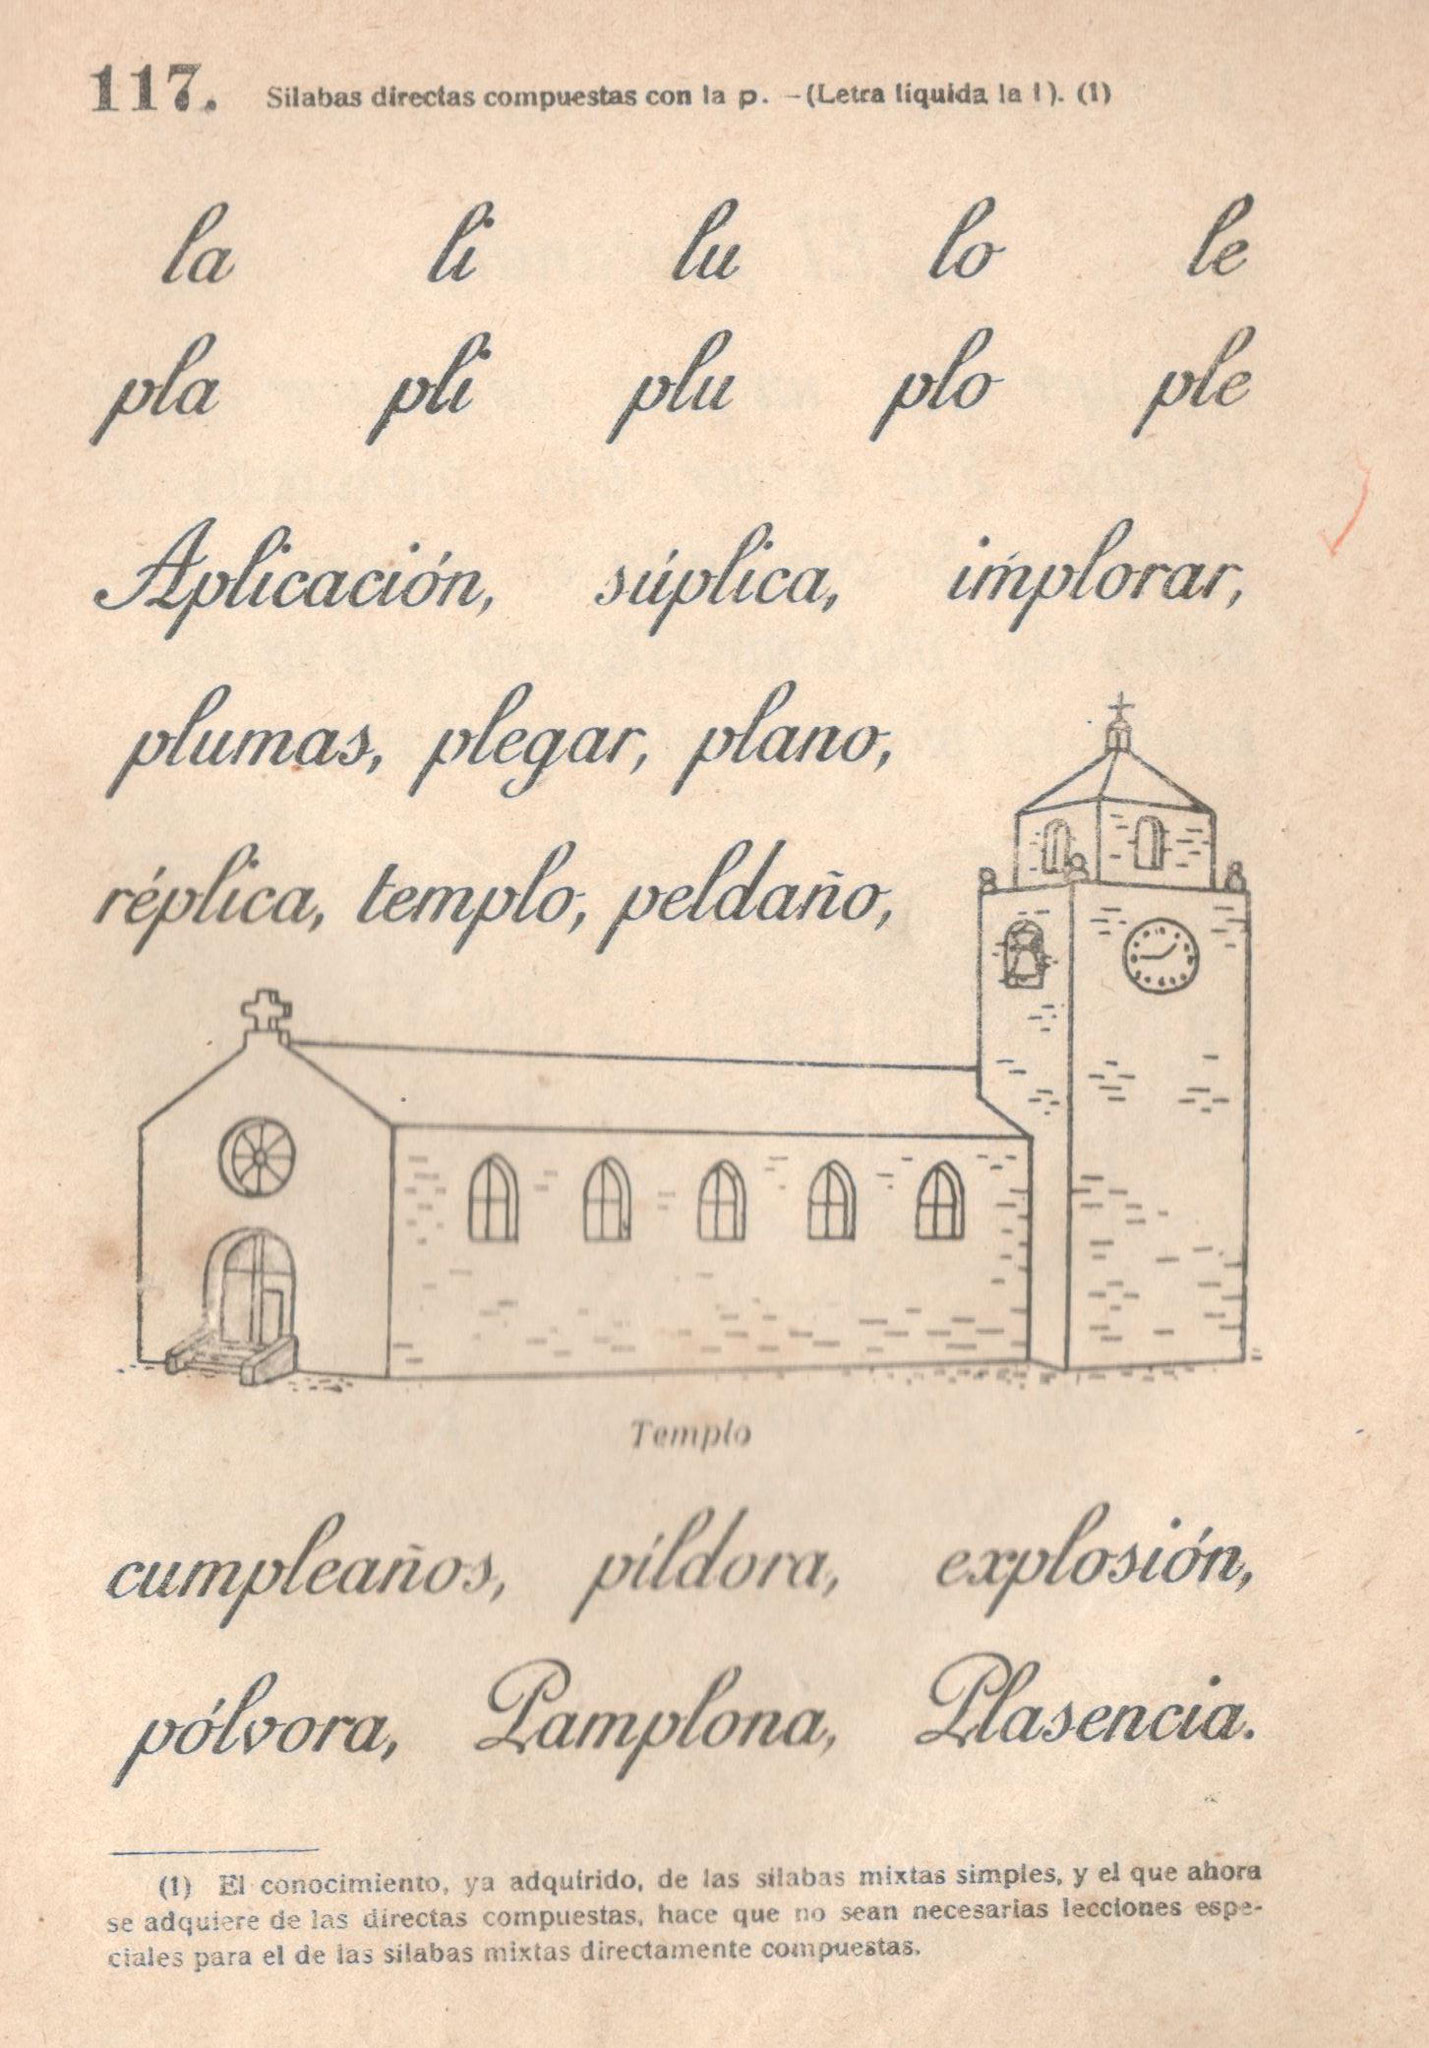 117. Sílabas directas compuestas con la p. -(Letra líquida la l). (1)
la li lu lo le
pla pli plu plo ple
Aplicación, súplica, implorar,
plumas, plegar, plano,
réplica, templo, peldaño,
Templo
cumpleaños, píldora, explosión,
pólvora, Pamplona, Plasencia.
(1) El conocimiento, ya adquirido, de las sílabas mixtas simples, y el que ahora
se adquiere de las directas compuestas, hace que no sean necesarias lecciones espe-
ciales para el de las sílabas mixtas directamente compuestas.